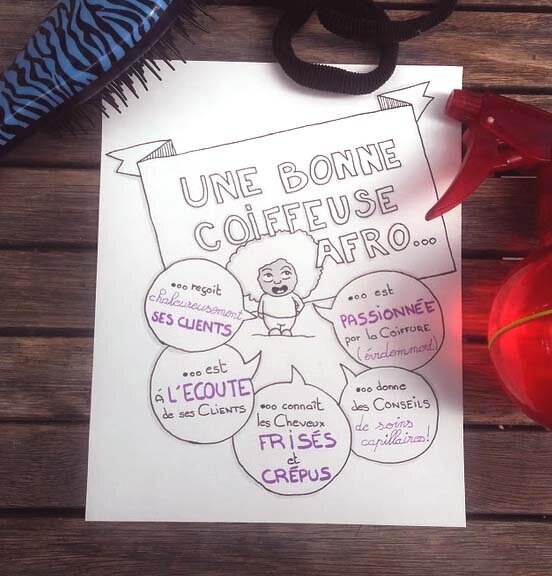 UNE BONNE
COiFFEUSE
AFRO...
... reçoit
chaleureusement
SES CLIENTS
... est
PASSIONNÉE
par la COIFFURE
(évidemment)
... est
À L'ECOUTE
de ses CLIENTS
... connaît
les Cheveux
FRiSÉS
et
CRÉPUS
... donne
des CONSEILS
de soins
capillaires!